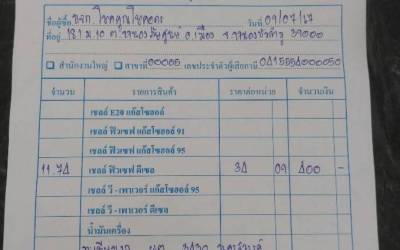 ชื่อผู้ซื้อ หจก. โชคคูณโชคอคร วันที่ 09/07/67
ที่อยู่ 181 ม.10 ต.หนองบัว อ.เมือง จ.หนองบัวลำภู 39000
สำนักงานใหญ่ สาขาที่ 00005 เลขประจำตัวผู้เสียภาษี
จำนวน รายการสินค้า ราคาต่อหน่วย จำนวนเงิน
เชลล์ E20 แก๊สโซฮอล์
เชลล์ ฟิวเซฟ แก๊สโซฮอล์ 91
เชลล์ ฟิวเซฟ แก๊สโซฮอล์ 95
11.74 เชลล์ ฟิวเซฟ ดีเซล 34 09 400 -
เชลล์ วี - เพาเวอร์ แก๊สโซฮอล์ 95
เชลล์ วี - เพาเวอร์ ดีเซล
น้ำมันเครื่อง